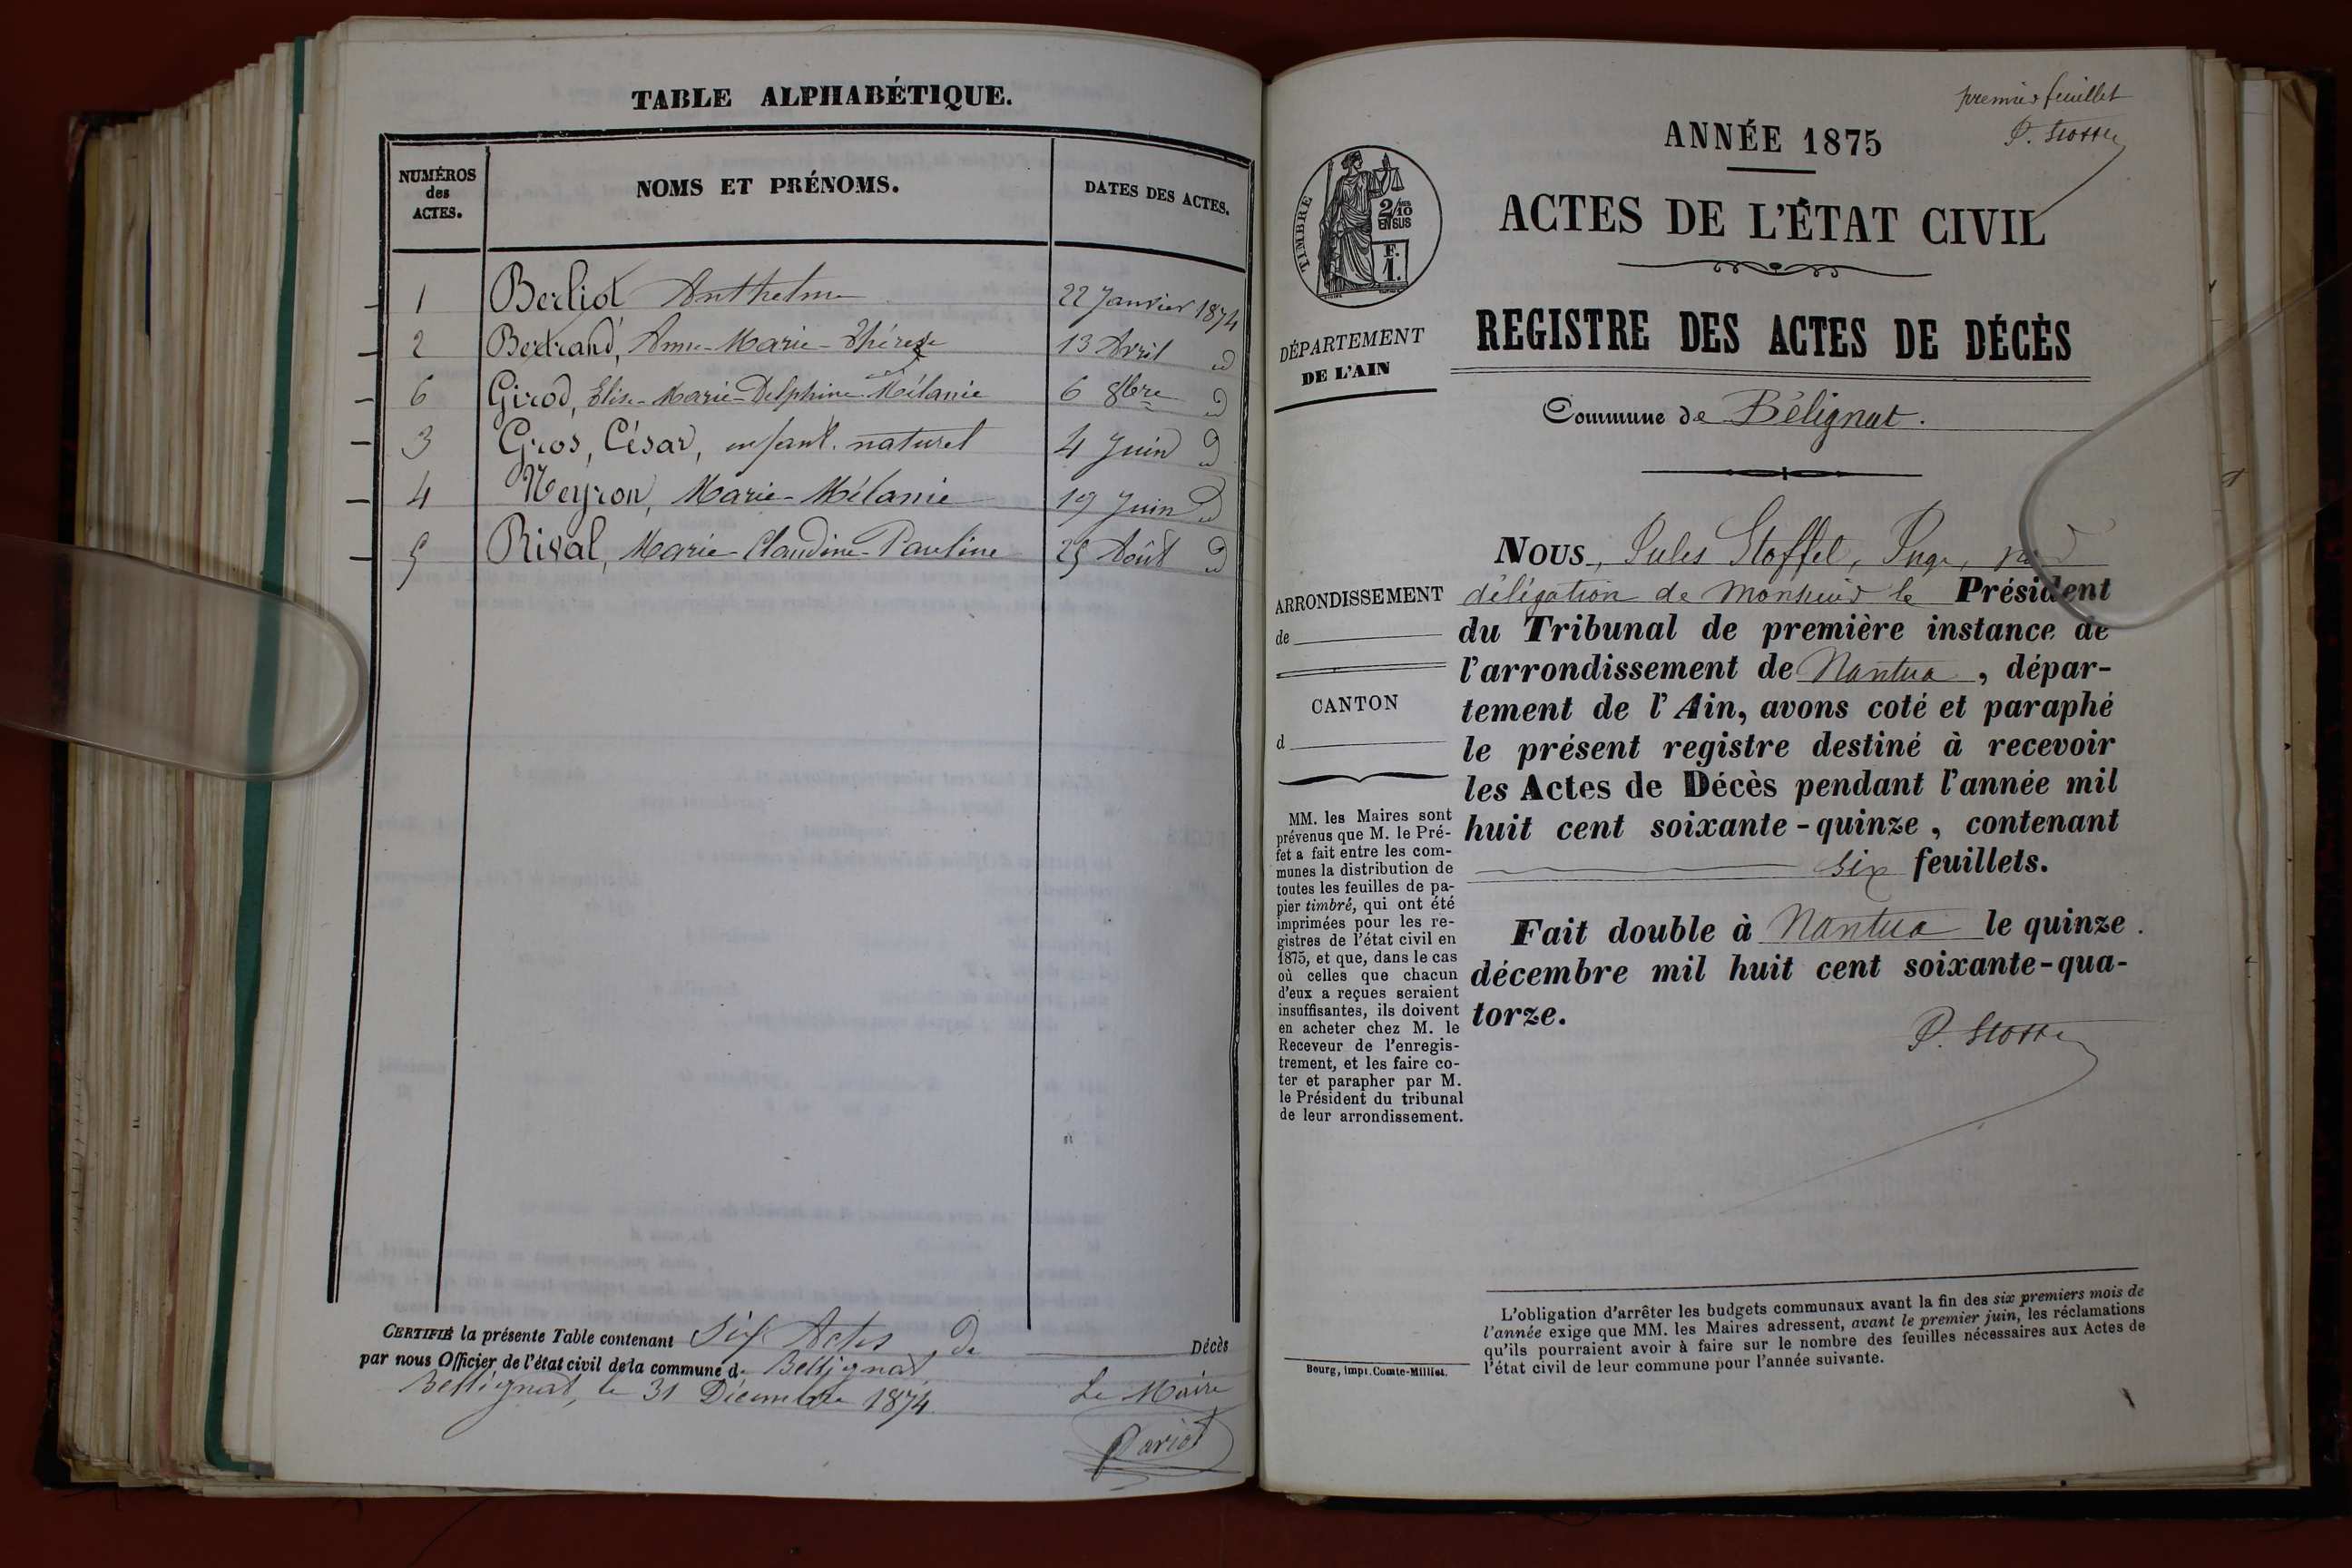 TABLE ALPHABÉTIQUE.
NUMÉROS
des
ACTES.
NOMS ET PRÉNOMS.
DATES DES ACTES.
1 Berliot Anthelme 22 Janvier 1874
2 Bertrand, Anne-Marie-Thérèse 13 Avril id
6 Girod, Elise-Marie-Delphine-Mélanie 6 8bre id
3 Gros, César, enfant naturel 4 Juin id
4 Neyron, Marie-Mélanie 19 Juin id
5 Rival, Marie-Claudine-Pauline 25 Août id
CERTIFIÉ la présente Table contenant Six Actes de Décès
par nous Officier de l'état civil de la commune de Bellignat,
Bellignat, le 31 Décembre 1874
Le Maire
Pariot
premier feuillet
ANNÉE 1875
ACTES DE L'ÉTAT CIVIL
TIMBRE
2/10
EN SUS
F.
1.
REGISTRE DES ACTES DE DÉCÈS
DÉPARTEMENT
DE L'AIN
Commune de Bélignat.
NOUS, Jules Stoffel, Juge, par
délégation de Monsieur le Président
du Tribunal de première instance de
l'arrondissement de Nantua, dépar-
tement de l'Ain, avons coté et paraphé
le présent registre destiné à recevoir
les Actes de Décès pendant l'année mil
huit cent soixante-quinze, contenant
six feuillets.
Fait double à Nantua le quinze
décembre mil huit cent soixante-qua-
torze.
ARRONDISSEMENT
de
CANTON
d
MM. les Maires sont
prévenus que M. le Pré-
fet a fait entre les com-
munes la distribution de
toutes les feuilles de pa-
pier timbré, qui ont été
imprimées pour les re-
gistres de l'état civil en
1875, et que, dans le cas
où celles que chacun
d'eux a reçues seraient
insuffisantes, ils doivent
en acheter chez M. le
Receveur de l'enregis-
trement, et les faire co-
ter et parapher par M.
le Président du tribunal
de leur arrondissement.
L'obligation d'arrêter les budgets communaux avant la fin des six premiers mois de
l'année exige que MM. les Maires adressent, avant le premier juin, les réclamations
qu'ils pourraient avoir à faire sur le nombre des feuilles nécessaires aux Actes de
l'état civil de leur commune pour l'année suivante.
Bourg, impr. Comte-Milliet.